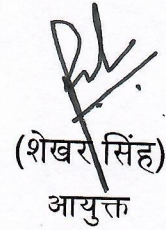 (शेखर सिंह)
आयुक्त